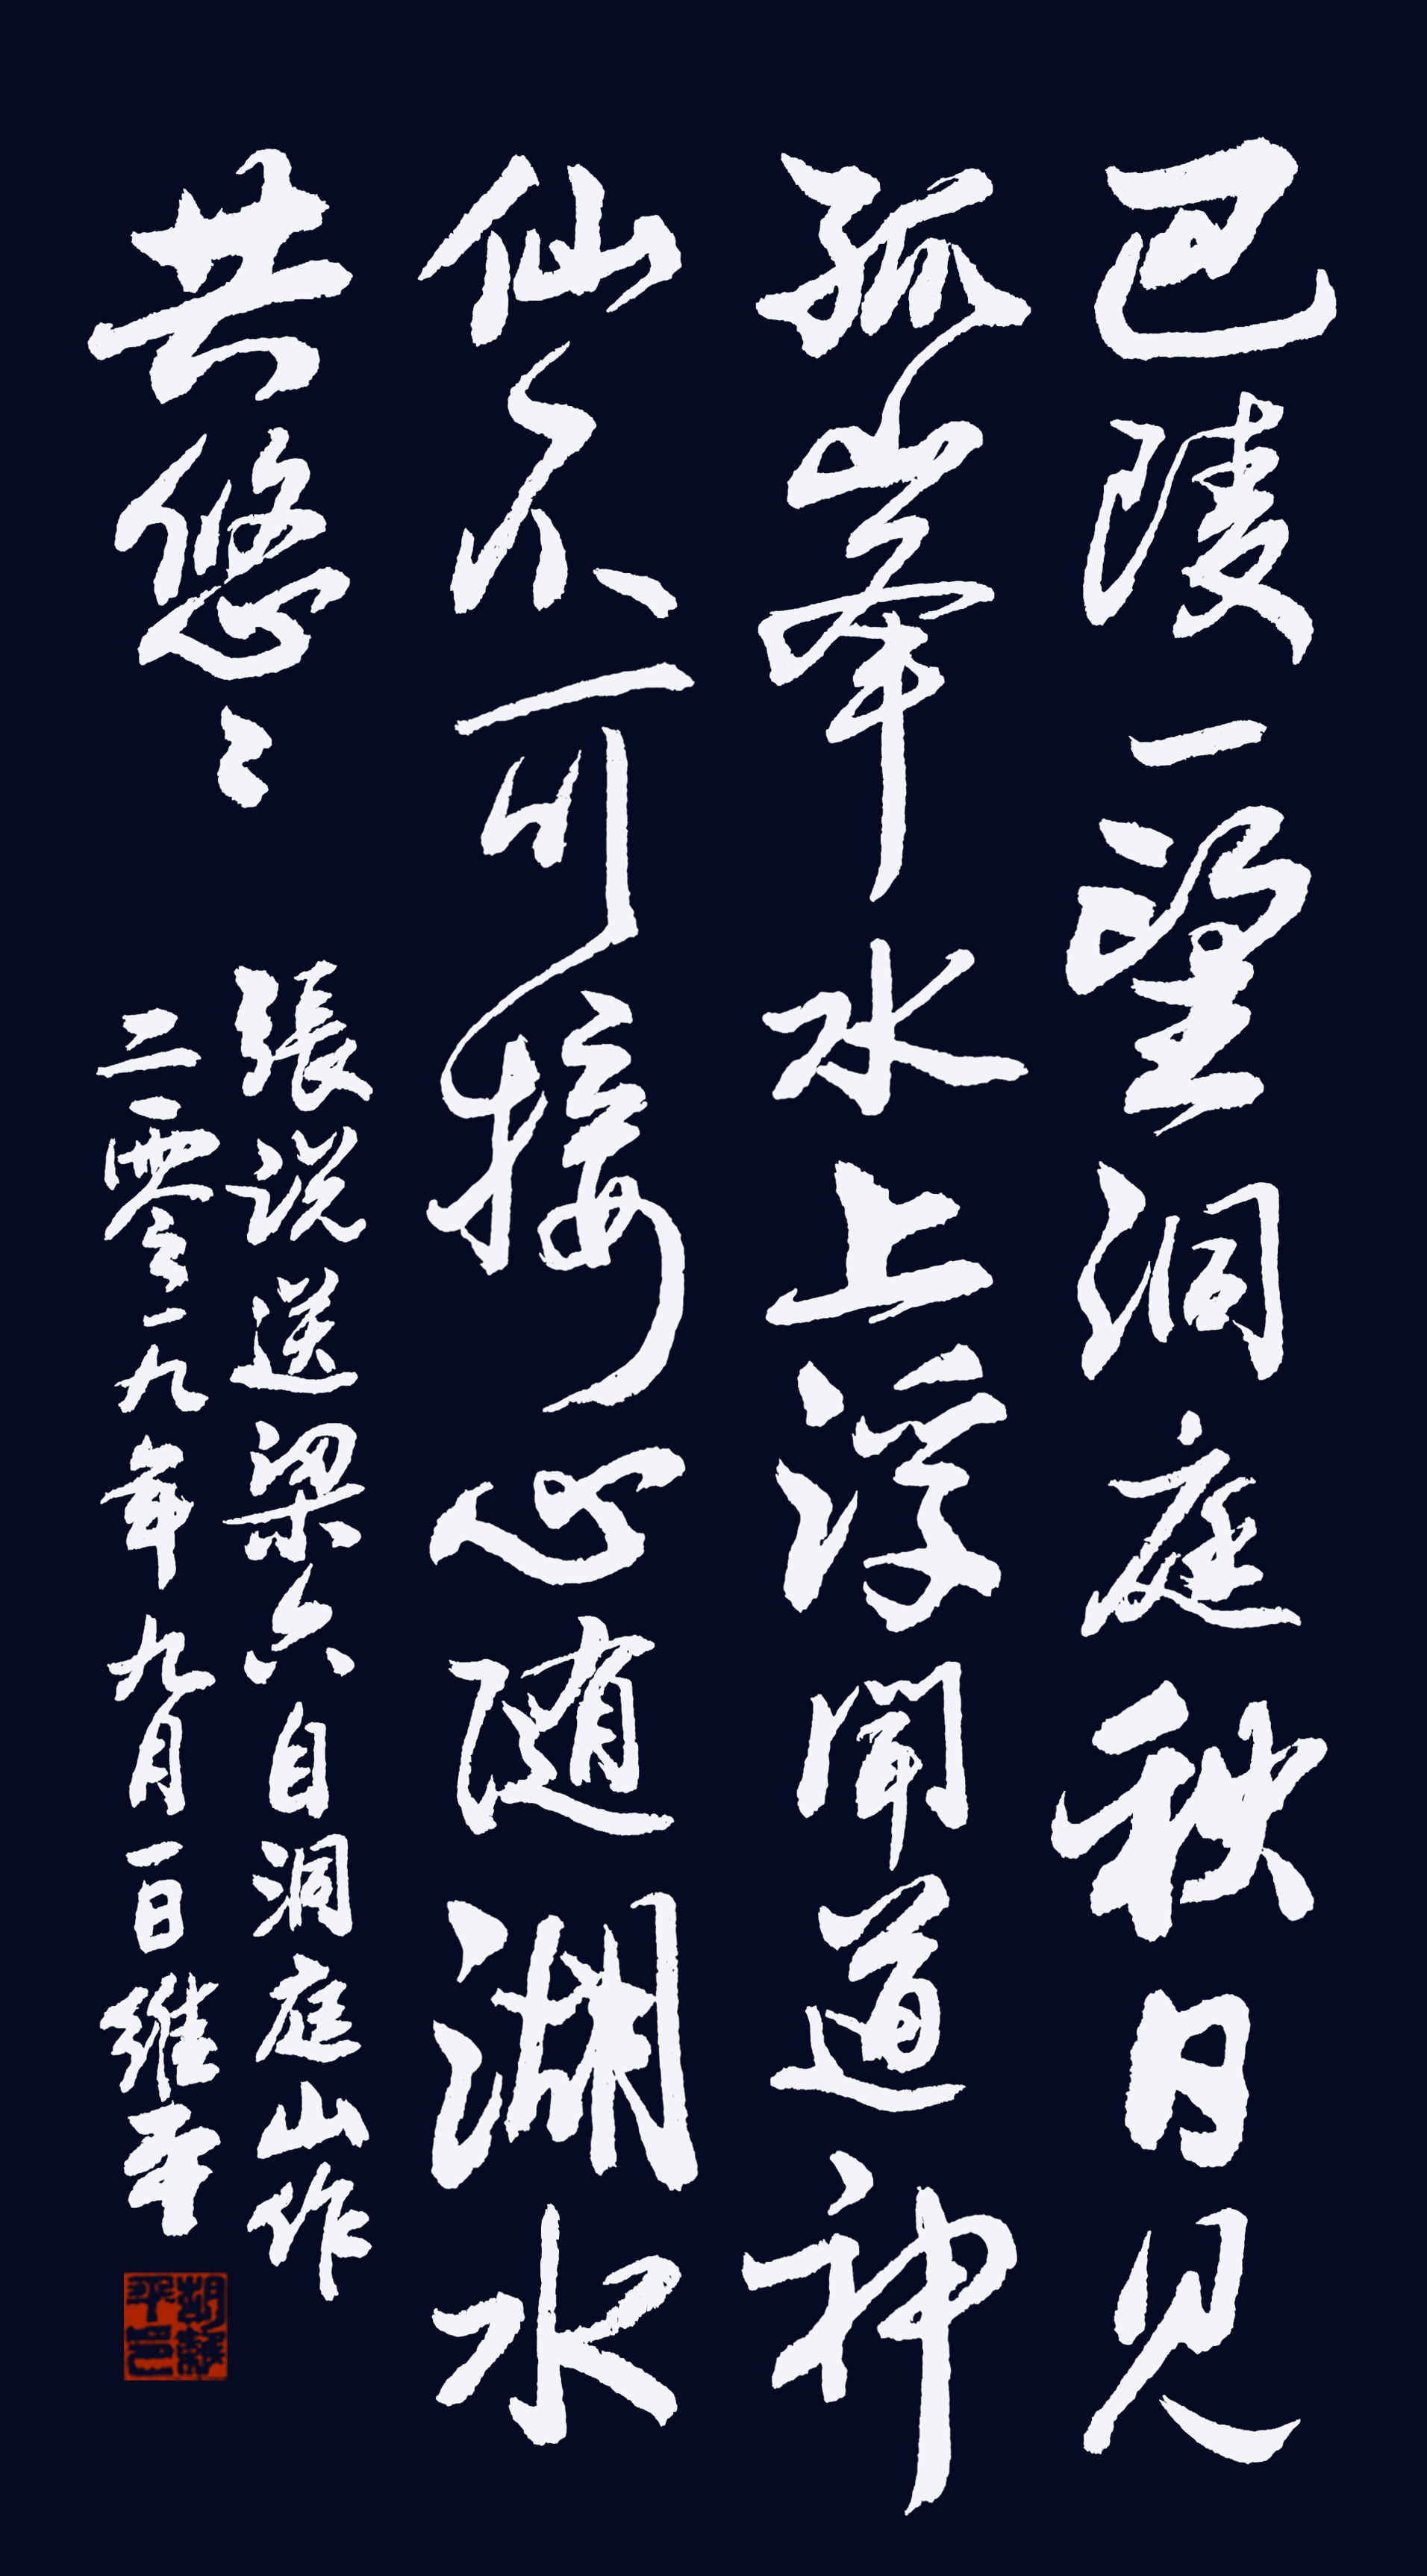 巴陵一望洞庭秋日見
孤峯水上浮聞道神
仙不可接心随湖水
共悠〻
張説送梁六自洞庭山作
二零一九年九月一日維平